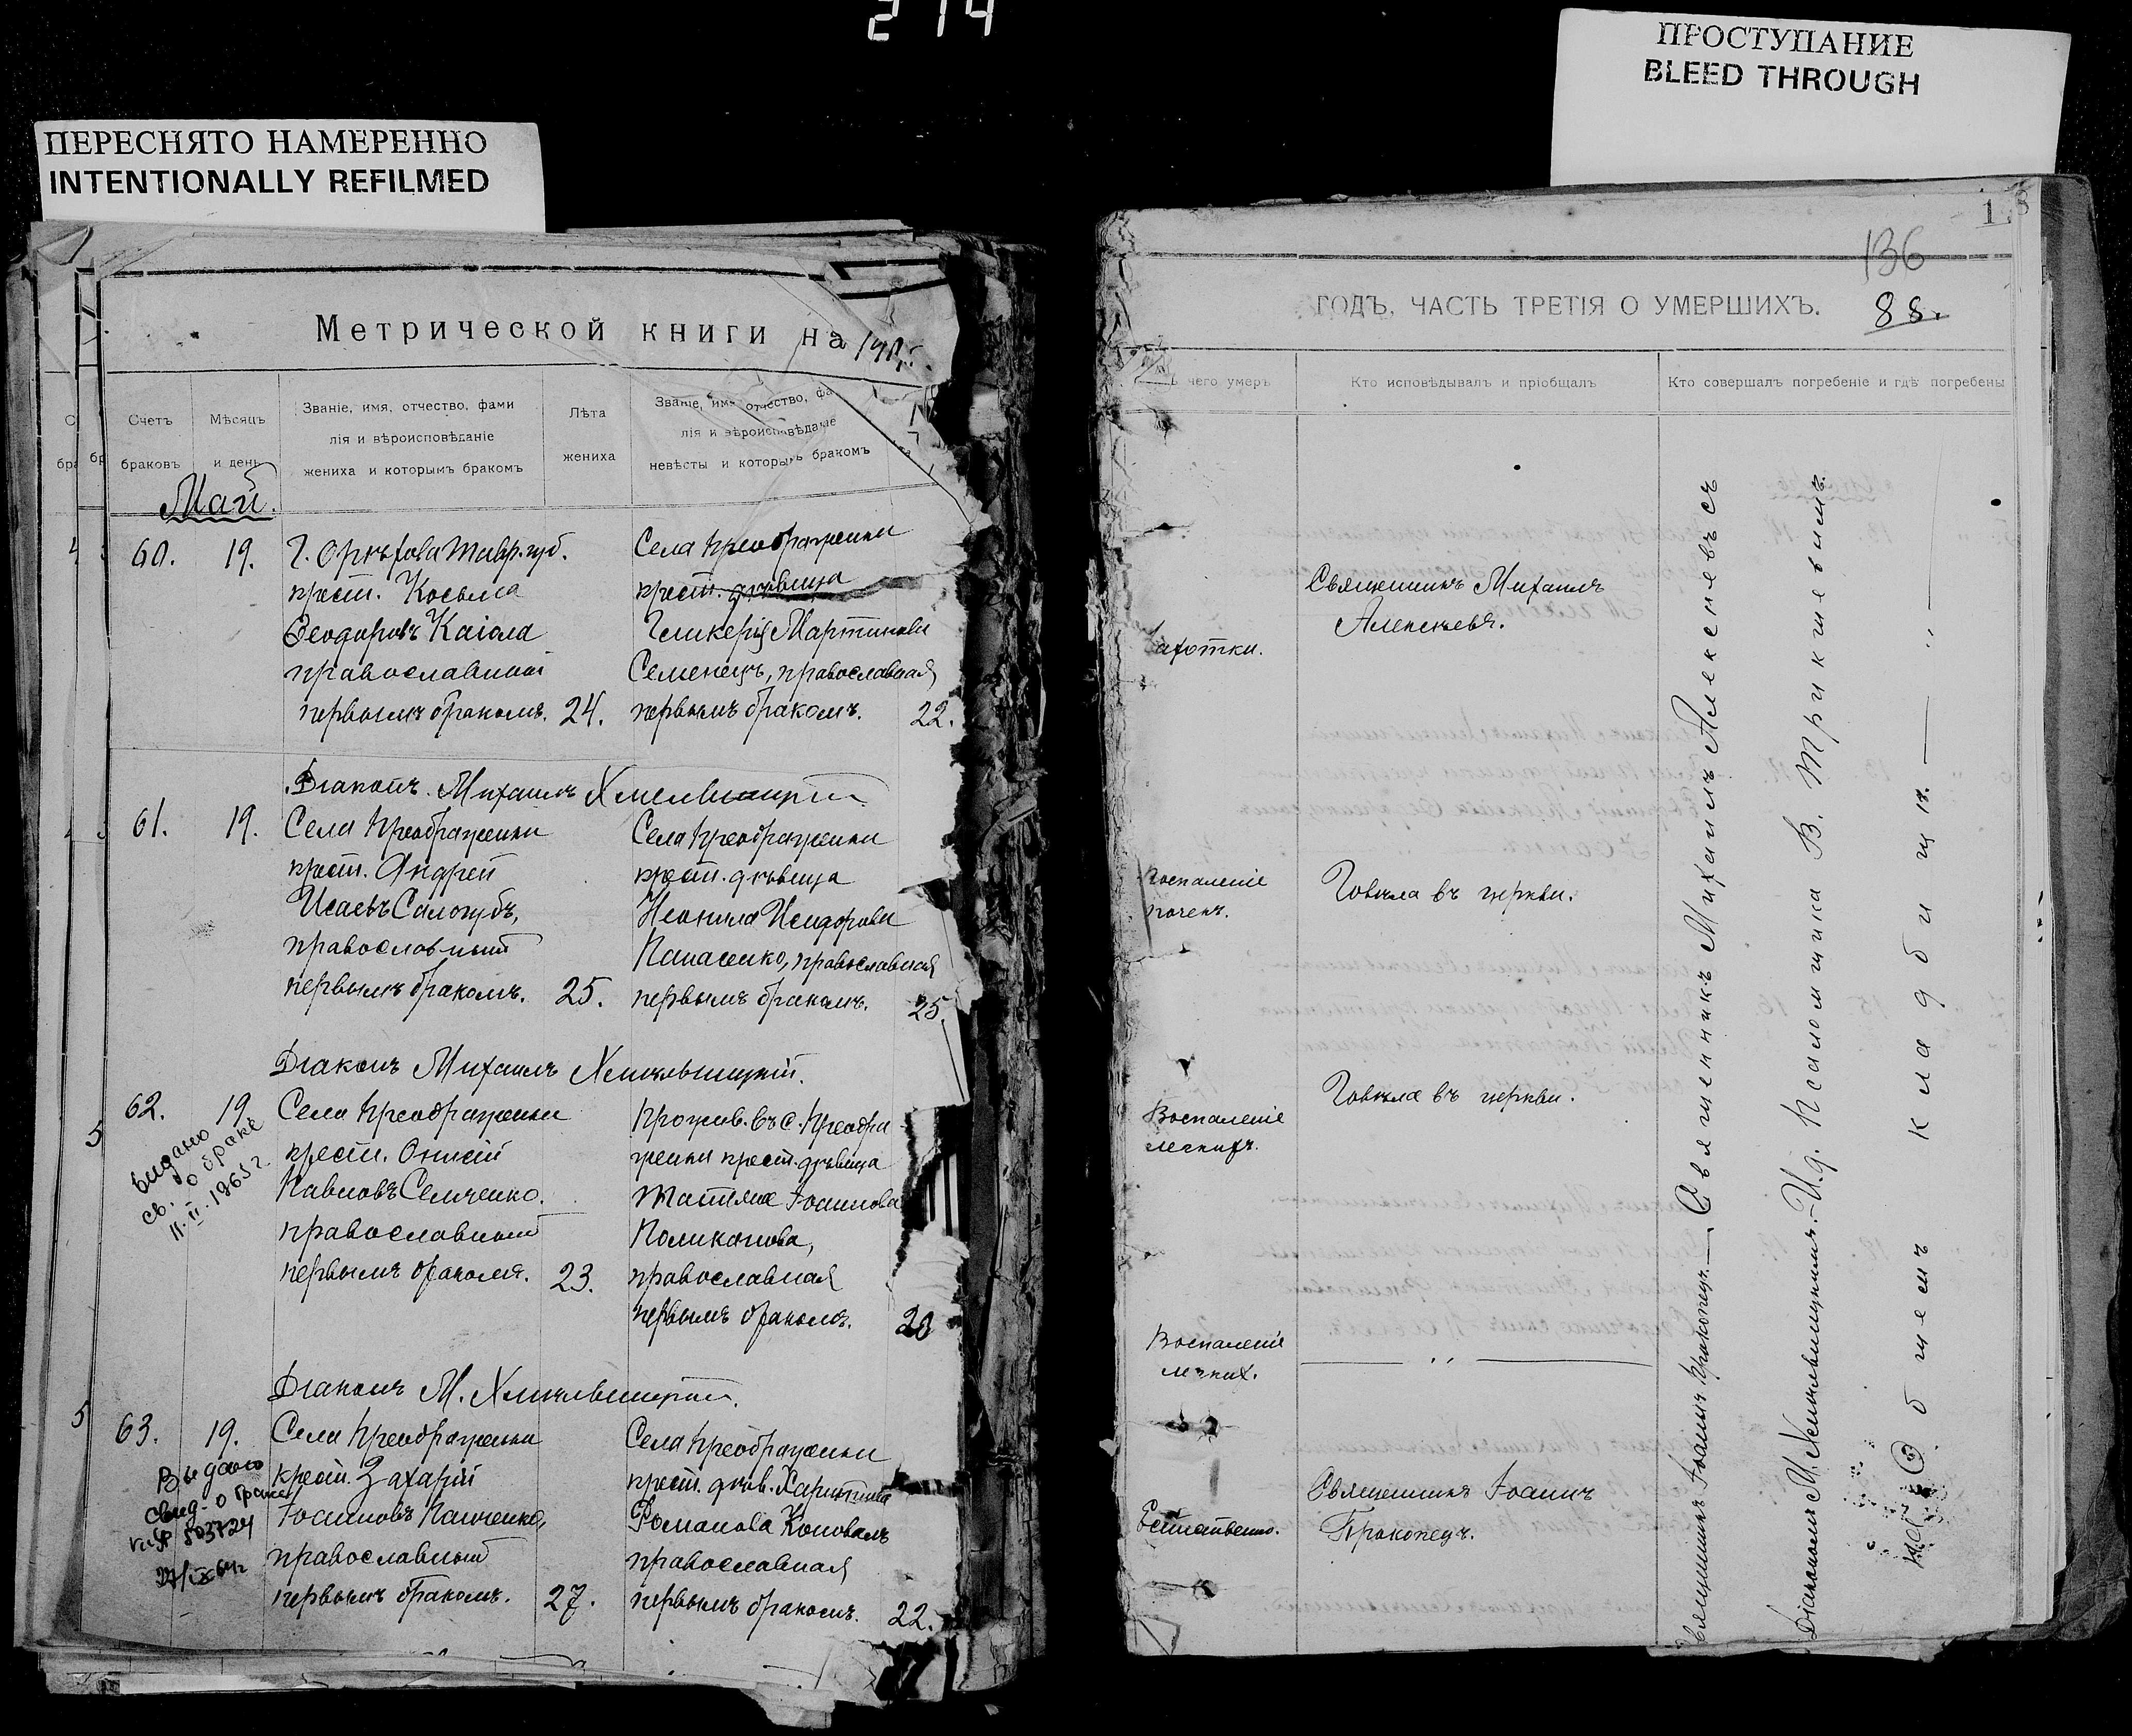 214
ПЕРЕСНЯТО НАМЕРЕННО
INTENTIONALLY REFILMED
Метрической книги на
Счетъ
браковъ
Мѣсяцъ
и день
Званіе, имя, отчество, фами
лія и вѣроисповѣданіе
жениха и которымъ бракомъ
Лѣта
жениха
Званіе, имя, отчество, фа
лія и вѣроисповѣданіе
невѣсты и которымъ бракомъ
Май.
60. 19.
Г. Орѣхова Тавр. губ.
крест. Косьма
Ѳеодоровъ Каіола
православный
первымъ бракомъ. 24.
Села Преображенки
крест. дѣвица
Гликерія Мартинова
Семенецъ, православная
первымъ бракомъ. 22.
Діаконъ Михаилъ Хмельницкій
61. 19.
Села Преображенки
крест. Андрей
Исаевъ Салогубъ,
православный
первымъ бракомъ. 25.
Села Преображенки
крест. дѣвица
Неонила Исидорова
Панасенко, православная
первымъ бракомъ. 25.
Діаконъ Михаилъ Хмѣльницкій.
62. 19.
видано
св. о браке
11.II.1965 г.
Села Преображенки
крест. Онисій
Павловъ Семченко.
православный
первымъ бракомъ. 23.
Прожив. въ с. Преобра
женки крест. дѣвица
Татіана Іоаннова
Поликанова,
православная
первымъ бракомъ. 20
Діаконъ М. Хмѣльницкій.
63. 19.
Выдано
свид-о браке
503724
27/IX 64г
Села Преображенки
крест. Захарій
Іоанновъ Панченко,
православный
первымъ бракомъ. 27.
Села Преображенки
крест. дѣв. Харитина
Романова Коноваль
православная
первымъ бракомъ. 22.
ПРОСТУПАНИЕ
BLEED THROUGH
136
ГОДЪ, ЧАСТЬ ТРЕТІЯ О УМЕРШИХЪ.
88.
чего умеръ
Кто исповѣдывалъ и пріобщалъ
Кто совершалъ погребеніе и гдѣ погребены
Чахотки.
Священникъ Михаилъ
Алексѣевъ.
Воспаленіе
почекъ.
Говѣла въ церкви.
Воспаленіе
легкихъ.
Говѣла въ церкви.
Воспаленіе
легких.
— ,, —
Естественно.
Священникъ Іоаннъ
Прокопецъ.
Священникъ Іоаннъ Прокопецъ. — Священникъ Михаилъ Алексѣевъ съ
Діакономъ М. Хмѣльницкимъ. — И. д. Псаломщика В. Трикшевимъ.
На общемъ кладбищѣ. — ,, —